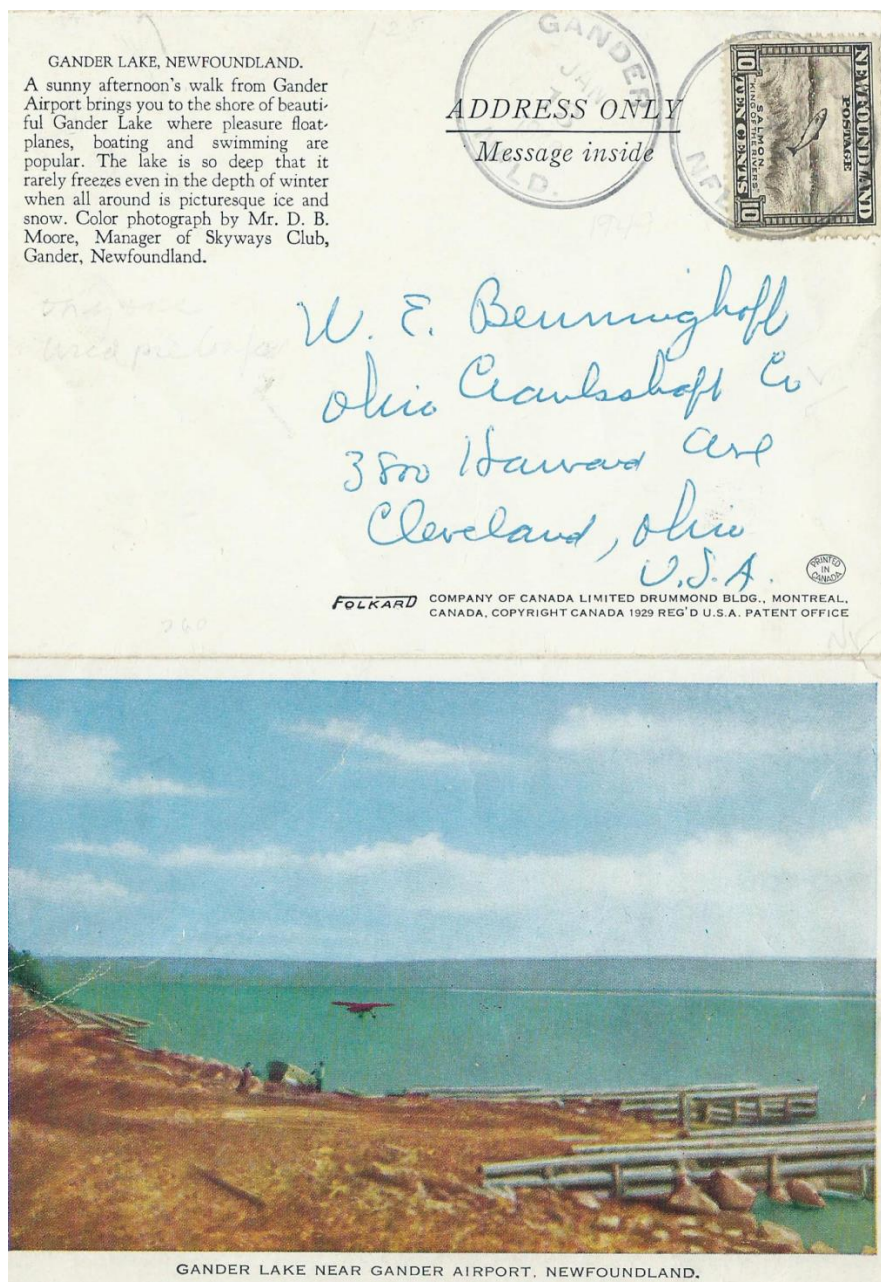 GANDER LAKE, NEWFOUNDLAND.
A sunny afternoon's walk from Gander
Airport brings you to the shore of beauti-
ful Gander Lake where pleasure float-
planes, boating and swimming are
popular. The lake is so deep that it
rarely freezes even in the depth of winter
when all around is picturesque ice and
snow. Color photograph by Mr. D. B.
Moore, Manager of Skyways Club,
Gander, Newfoundland.
GANDER
JAN
NFLD.
ADDRESS ONLY
Message inside
NEWFOUNDLAND
POSTAGE
SALMON
"KING OF THE RIVERS"
10 TEN CENTS 10
NFL
1947
W. E. Benninghoff
Ohio Crankshaft Co
3800 Harvard Ave
Cleveland, Ohio
U.S.A.
PRINTED
IN
CANADA
FOLKARD COMPANY OF CANADA LIMITED DRUMMOND BLDG., MONTREAL,
CANADA, COPYRIGHT CANADA 1929 REG'D U.S.A. PATENT OFFICE
GANDER LAKE NEAR GANDER AIRPORT, NEWFOUNDLAND.